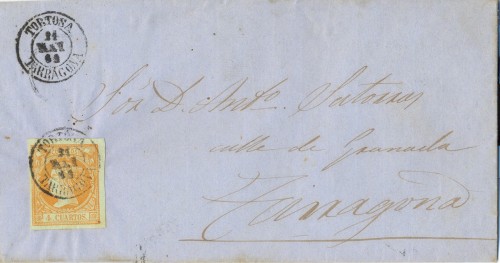 TORTOSA
21
MAY
62
TARRAGONA
Sor D. Anto. Satorras
calle de Granada
Tarragona
TORTOSA
21
MAY
62
TARRAGONA
4 CUARTOS